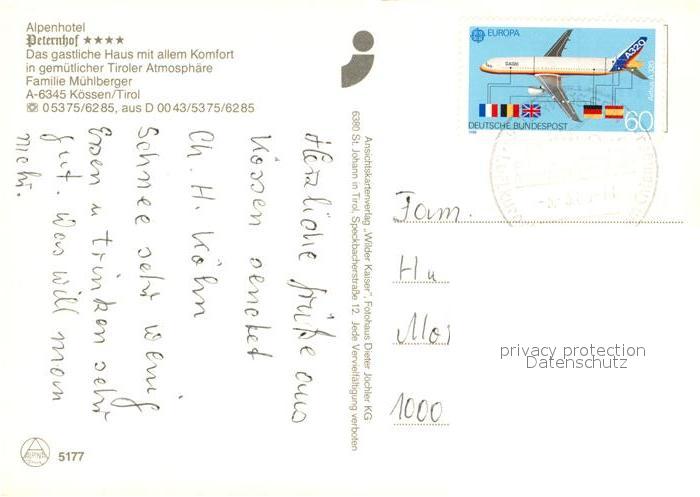 Alpenhotel
Peternhof ★★★★
Das gastliche Haus mit allem Komfort
in gemütlicher Tiroler Atmosphäre
Familie Mühlberger
A-6345 Kössen/Tirol
☏ 05375/6285, aus D 0043/5375/6285
Herzliche Grüße aus
Kössen sendet
Ch. H. Köhn
Schnee sehr wenig
Essen u trinken sehr
gut. Was will man
mehr.
ALPINA
5177
Ansichtskartenverlag „Wilder Kaiser", Fotohaus Dieter Jöchler KG
6380 St. Johann in Tirol, Speckbacherstraße 12. Jede Vervielfältigung verboten
EUROPA
A320
Airbus A 320
DEUTSCHE BUNDESPOST
60
Fam.
Hu
Mo
1000
privacy protection
Datenschutz